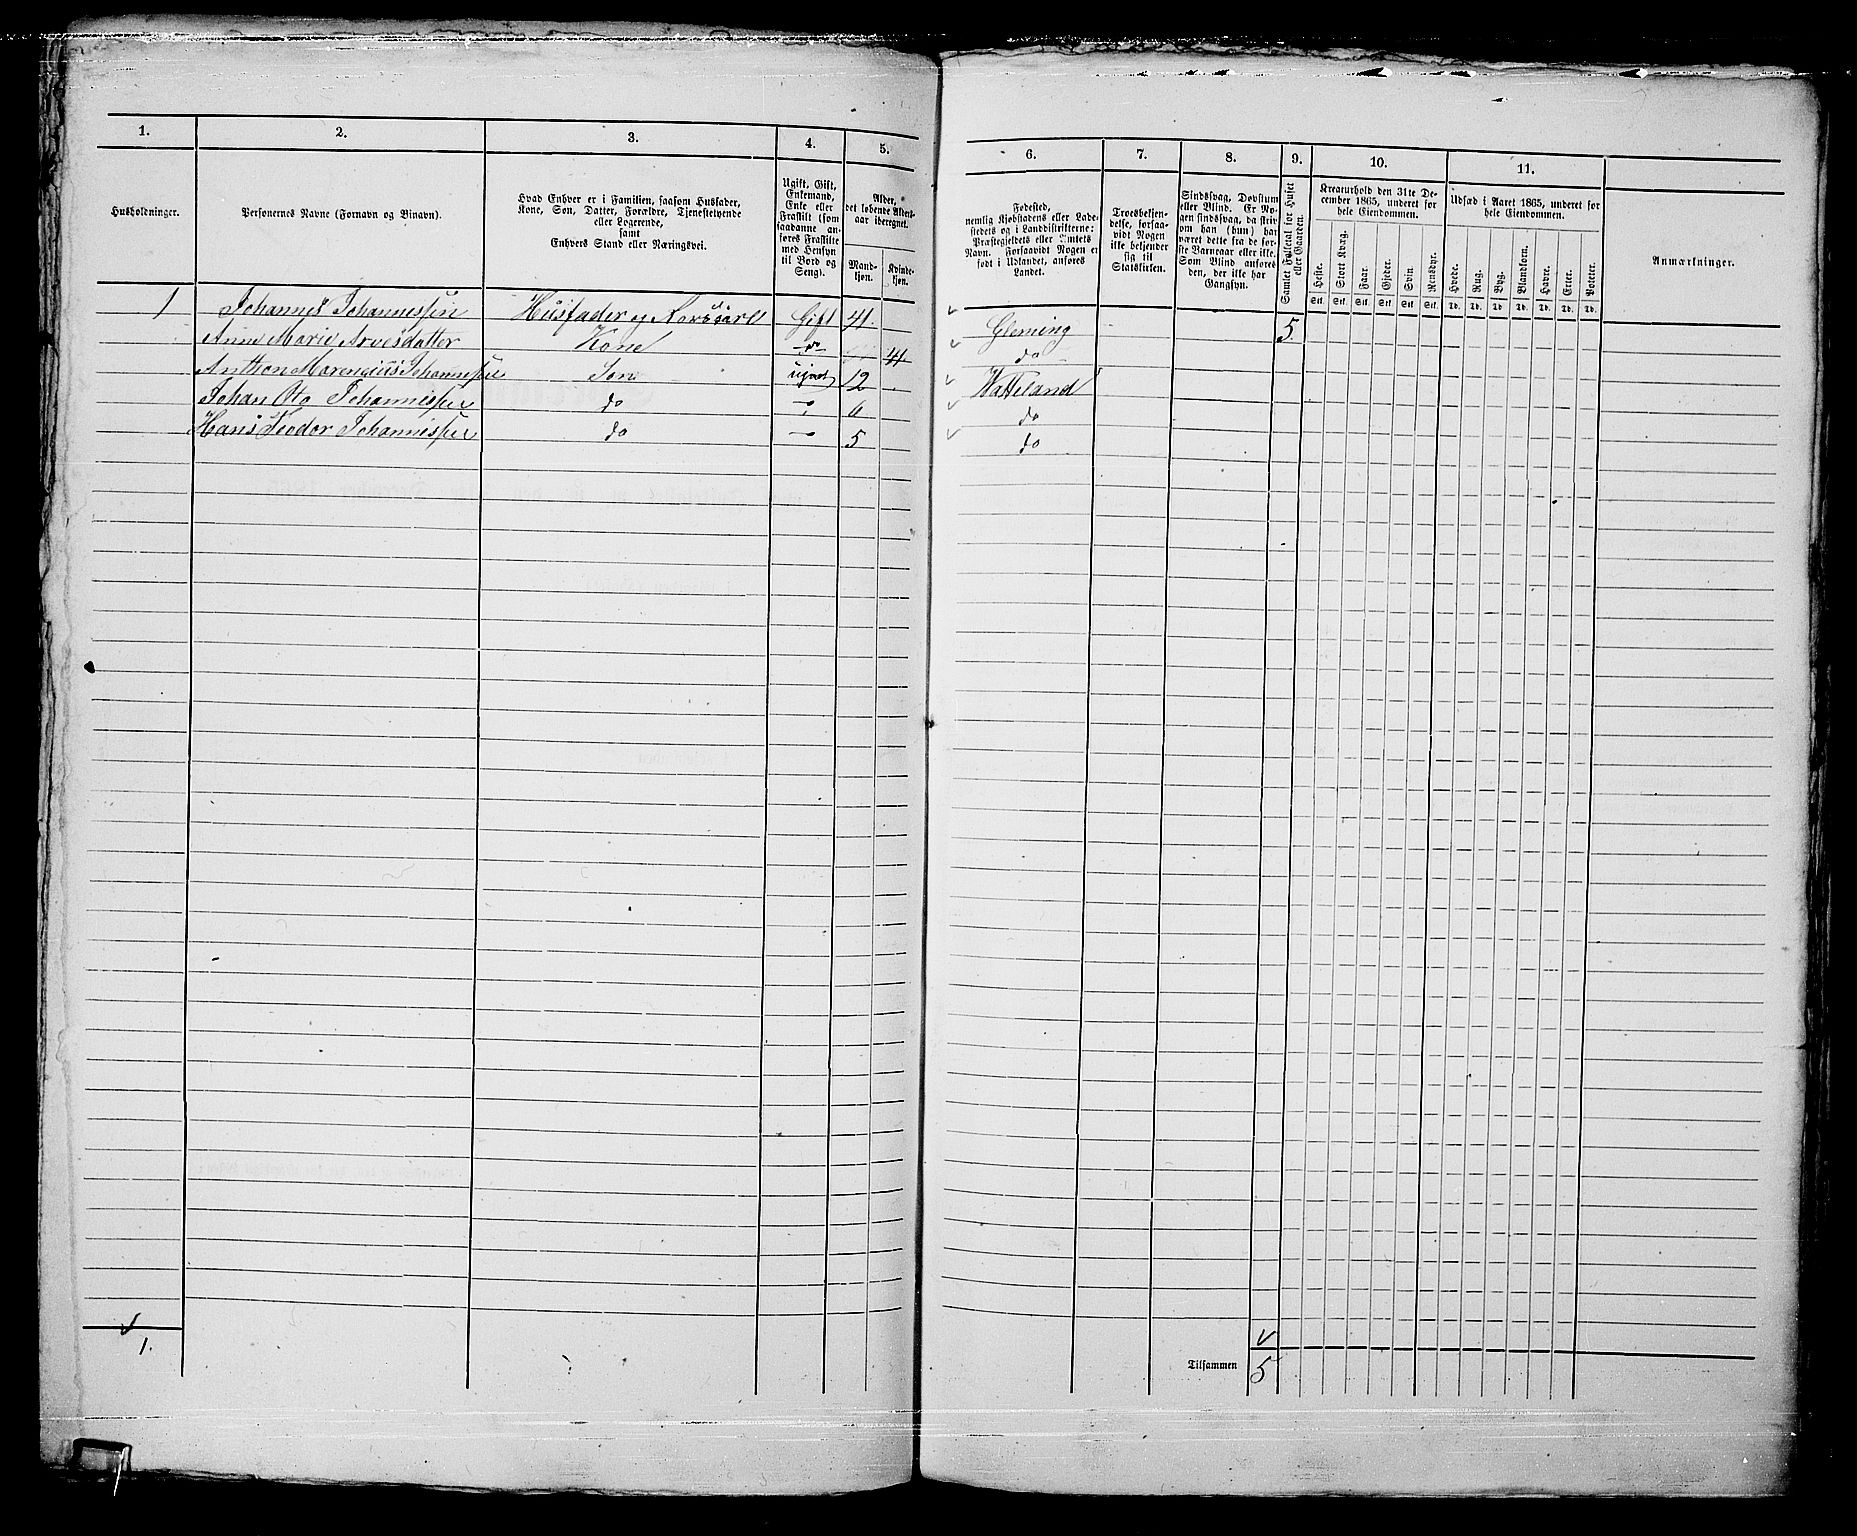 1. 2. 3. 4. 5.
Husholdninger.
Personernes Navne (Fornavn og Binavn).
Hvad Enhver er i Familien, saasom Husfader,
Kone, Søn, Datter, Forældre, Tjenestetyende
eller Logerende,
samt
Enhvers Stand eller Næringsvei.
Ugift, Gift,
Enkemand,
Enke eller
Fraskilt (som
saadanne an-
føres Fraskilte
med Hensyn
til Bord og
Seng).
Alder,
det løbende Alders-
aar iberegnet.
Mand-
kjøn.
Kvinde-
kjøn.
1 Johannes Johannessen Husfader og Gift 41.
Anne Marie Arvesdatter Kone do 41
Anthon Johannessen Søn ugivt 12
Johan Oto Johannessen do — 6
Hans Teodor Johannessen do — 5
1.
6. 7. 8. 9. 10. 11.
Fødested,
nemlig Kjøbstadens eller Lade-
stedets og i Landdistrikterne:
Præstegjeldets eller Amtets
Navn. Forsaavidt Nogen er
født i Udlandet, anføres
Landet.
Troesbekjen-
delse, forsaa-
vidt Nogen
ikke bekjender
sig til
Statskirken.
Sindssvag, Døvstum
eller Blind. Er No-
gen sindssvag, da skriv
om han (hun) har
været dette fra de før-
ste Barneaar eller ikke.
Som Blind anføres
den, der ikke har
Gangsyn.
Samlet Folketal for Huset
eller Gaarden.
Kreaturhold den 31te De-
cember 1865, underet for
hele Eiendommen.
Heste. Stort Kvæg. Faar. Gjeder. Svin. Rensdyr.
Stk. Stk. Stk. Stk. Stk. Stk.
Udsæd i Aaret 1865, underet for
hele Eiendommen.
Hvede. Rug. Byg. Blandkorn. Havre. Erter. Poteter.
Td. Td. Td. Td. Td. Td. Td.
Anmærkninger.
Gleming 5.
do
Watteland
do
do
Tilsammen 5